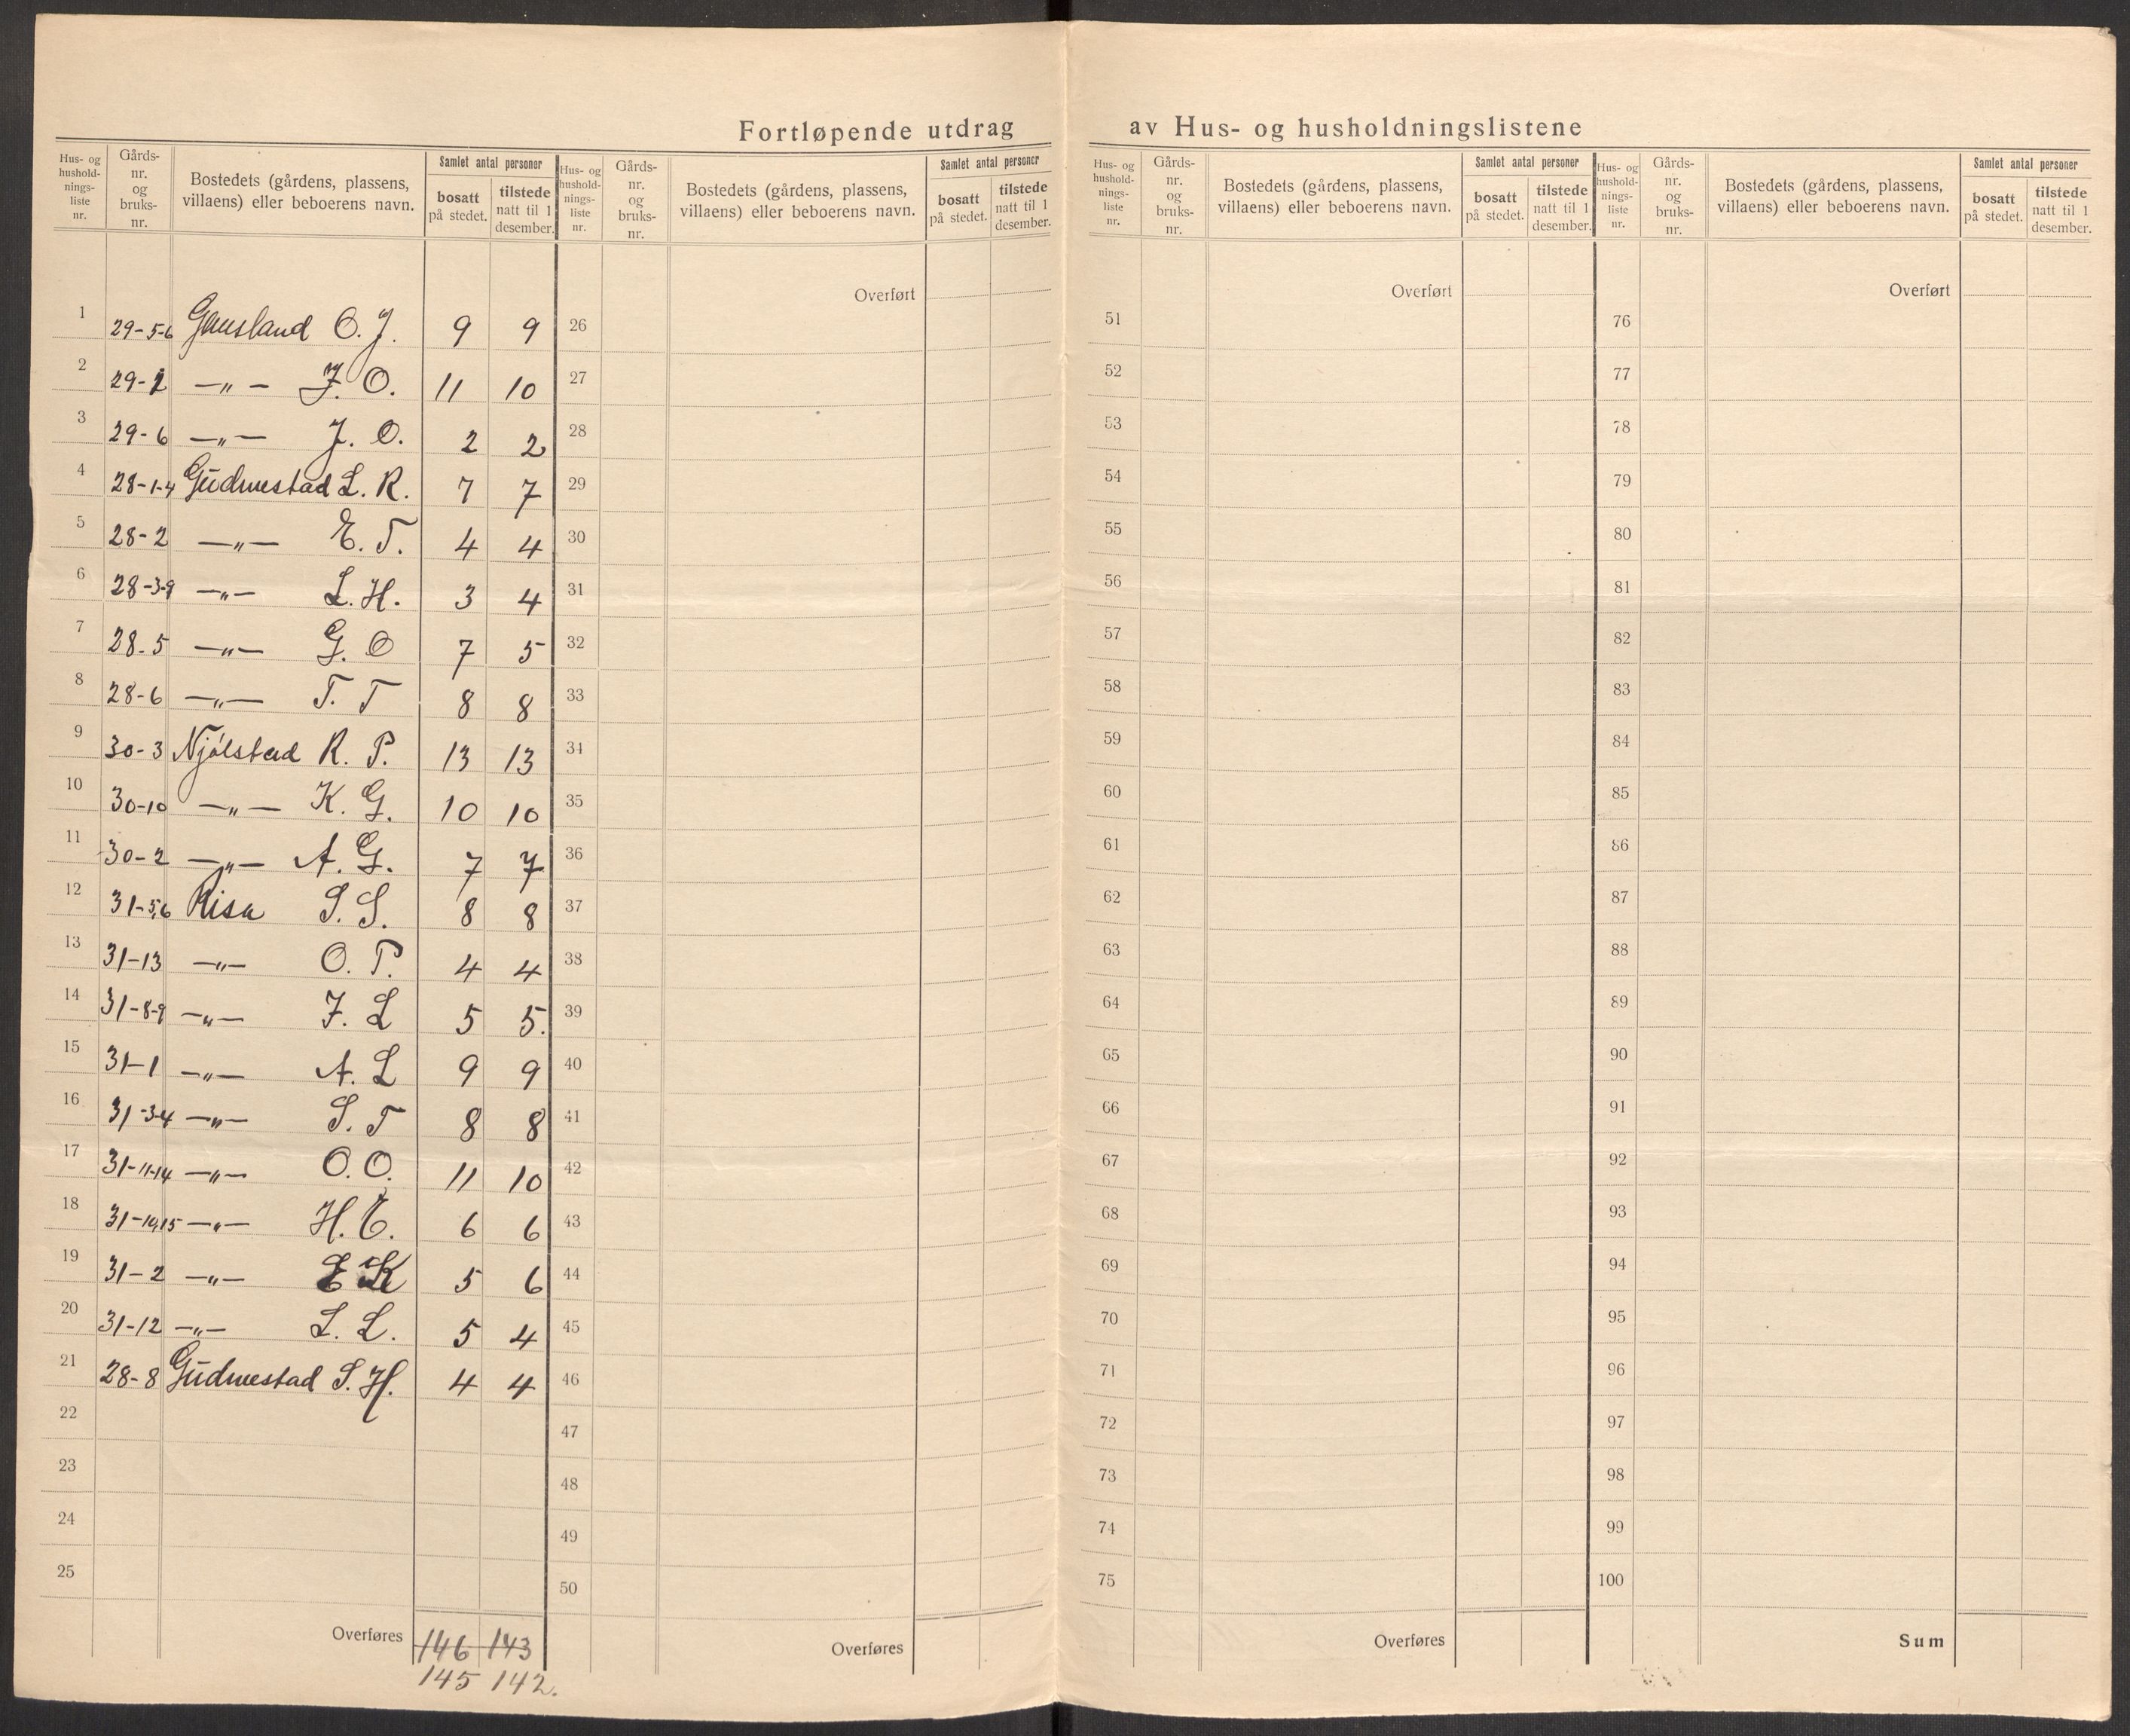 Fortløpende utdrag av Hus- og husholdningslistene
Hus- og husholdnings-liste nr. | Gårds-nr. og bruks-nr. | Bostedets (gårdens, plassens, villaens) eller beboerens navn. | Samlet antal personer | bosatt på stedet. | tilstede natt til 1 desember.
Hus- og husholdnings-liste nr. | Gårds-nr. og bruks-nr. | Bostedets (gårdens, plassens, villaens) eller beboerens navn. | Samlet antal personer | bosatt på stedet. | tilstede natt til 1 desember.
Hus- og husholdnings-liste nr. | Gårds-nr. og bruks-nr. | Bostedets (gårdens, plassens, villaens) eller beboerens navn. | Samlet antal personer | bosatt på stedet. | tilstede natt til 1 desember.
Hus- og husholdnings-liste nr. | Gårds-nr. og bruks-nr. | Bostedets (gårdens, plassens, villaens) eller beboerens navn. | Samlet antal personer | bosatt på stedet. | tilstede natt til 1 desember.
1 29-5-6 Gausland O. J. 9 9
2 29-1 —„— J. O. 11 10
3 29-6 —„— J. O. 2 2
4 28-1-4 Gudmestad L. R. 7 7
5 28-2 —„— E. T. 4 4
6 28-3-9 —„— L. H. 3 4
7 28-5 —„— G. O 7 5
8 28-6 —„— T. T 8 8
9 30-3 Njølstad R. P. 13 13
10 30-10 —„— K. G. 10 10
11 30-2 —„— A. G. 7 7
12 31-5,6 Risa S. S. 8 8
13 31-13 —„— O. P. 4 4
14 31-8-9 —„— J. L 5 5.
15 31-1 —„— A. L 9 9
16 31-3-4 —„— S. T 8 8
17 31-11-14 —„— O. O. 11 10
18 31-10,15 —„— H. E. 6 6
19 31-2 —„— K 5 6
20 31-12 —„— L. L. 5 4
21 28-8 Gudmestad S. H. 4 4
22
23
24
25
Overføres 146 143
145 142.
Overført
26
27
28
29
30
31
32
33
34
35
36
37
38
39
40
41
42
43
44
45
46
47
48
49
50
Overføres
Overført
51
52
53
54
55
56
57
58
59
60
61
62
63
64
65
66
67
68
69
70
71
72
73
74
75
Overføres
Overført
76
77
78
79
80
81
82
83
84
85
86
87
88
89
90
91
92
93
94
95
96
97
98
99
100
Sum